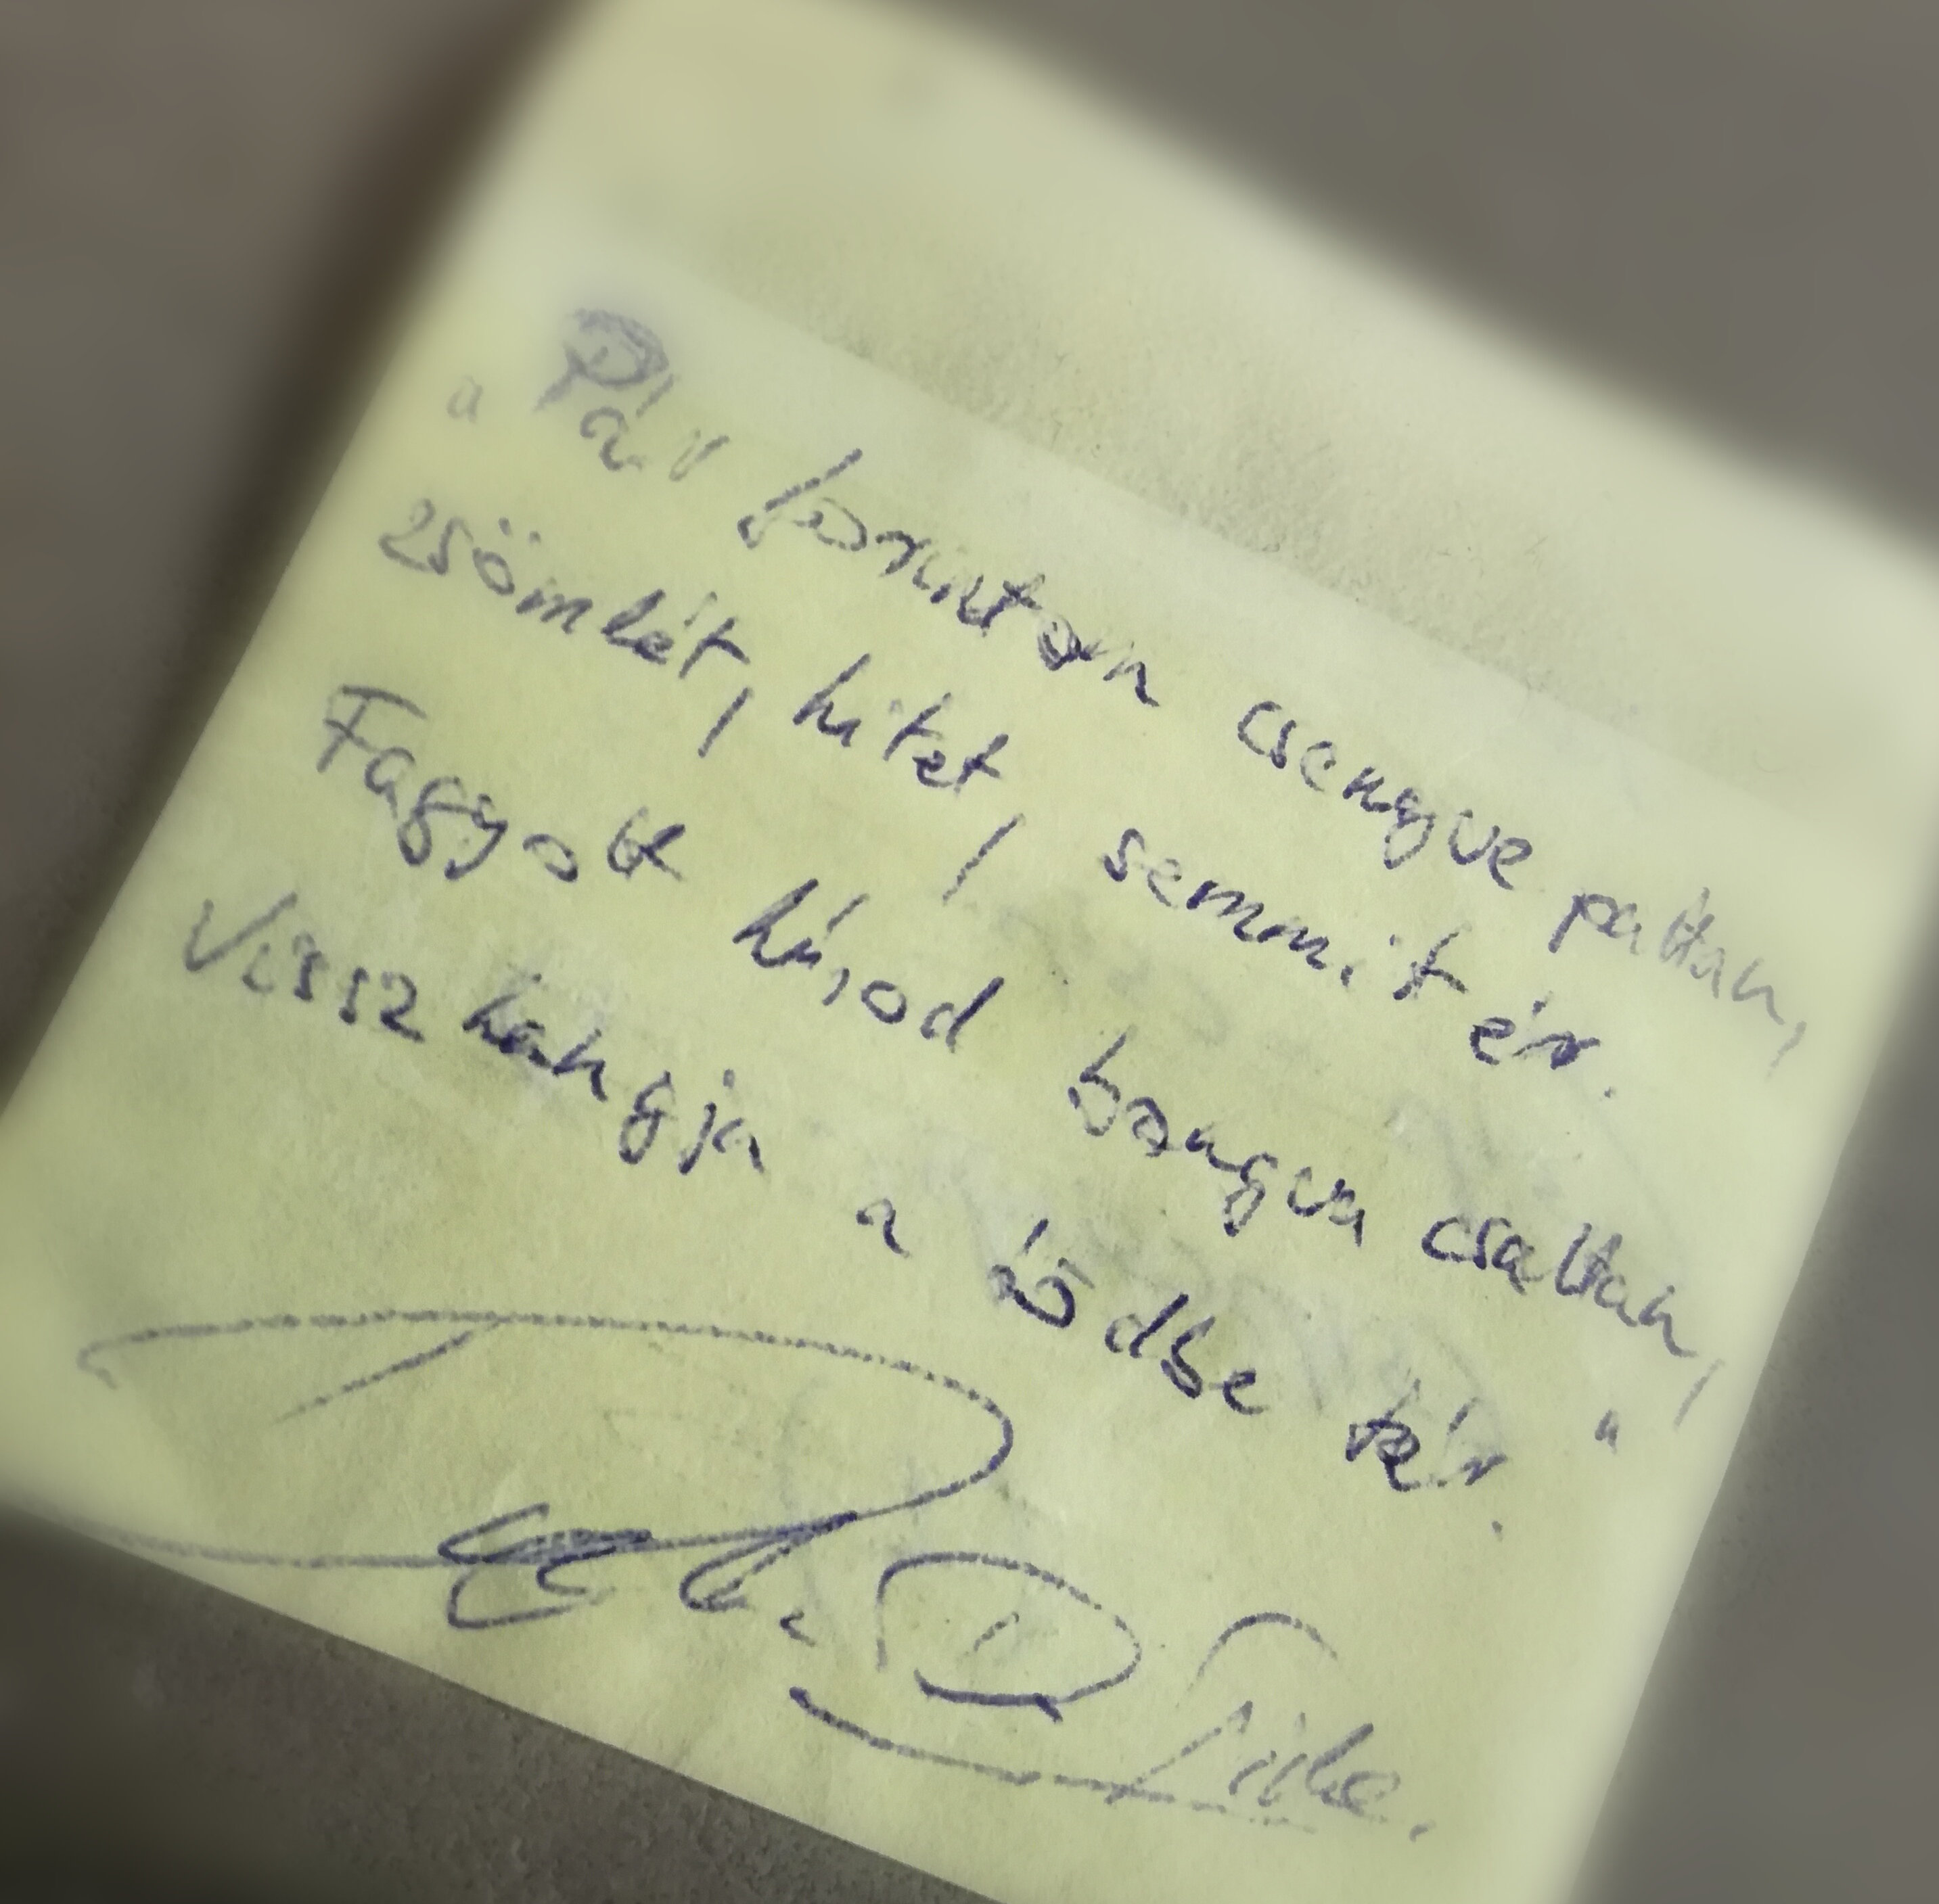 "Pár forinton csengve pattan,
zsömlét, hitet, semmit ér.
Fagyott húsod bongva csattan,
Visszhangja a ködbe tér."